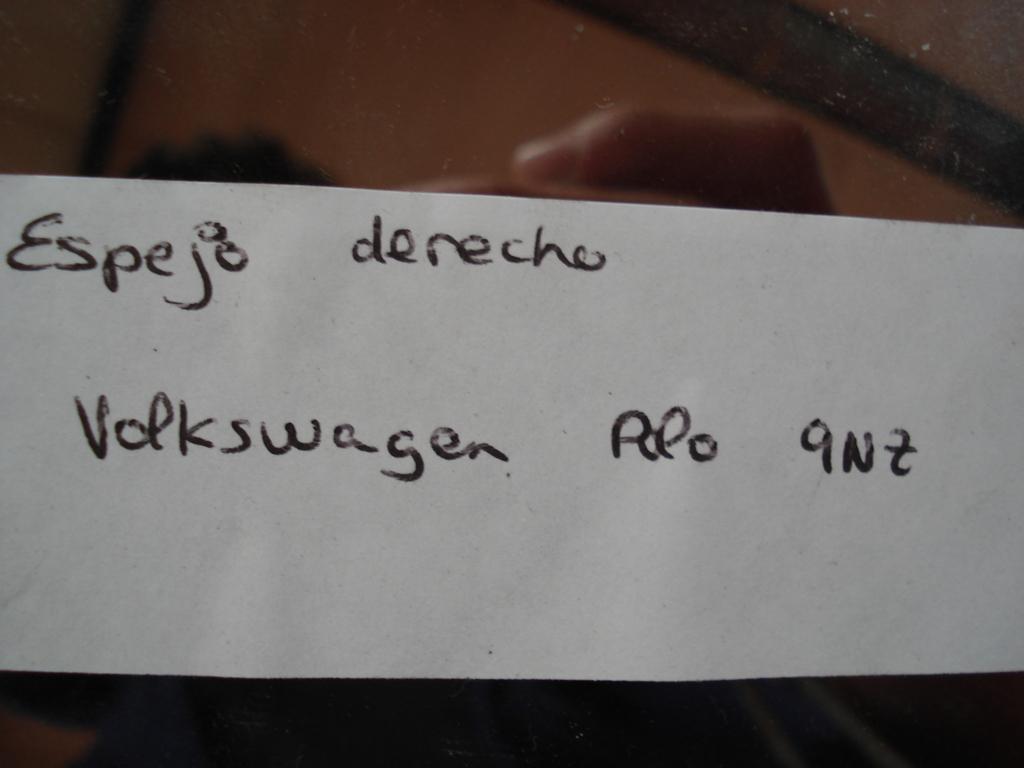 Espejo derecho
Volkswagen Polo 9NZ